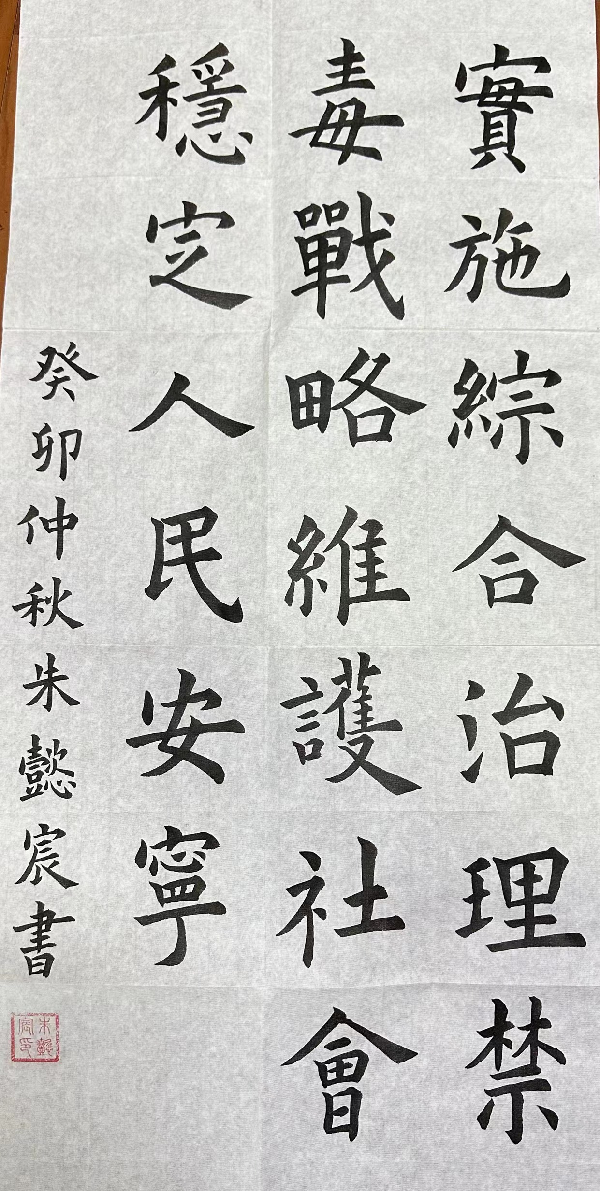 實施綜合治理禁
毒戰略維護社會
穩定人民安寧
癸卯仲秋朱懿宸書
朱懿宸印